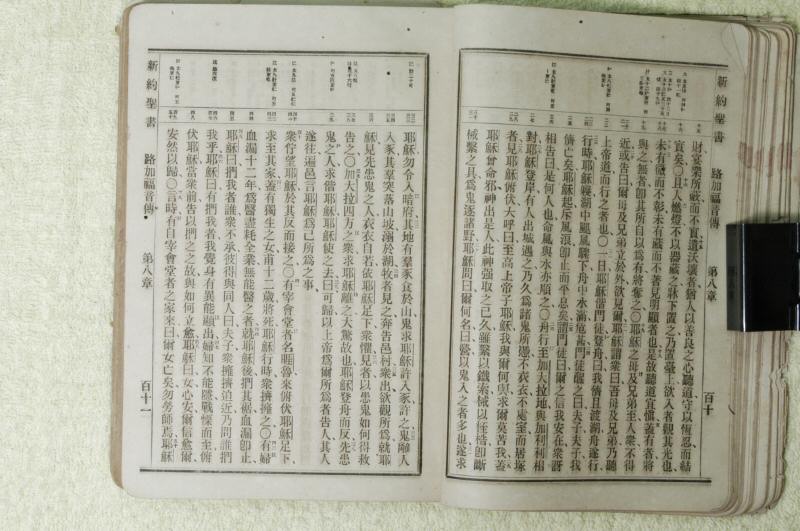 新約聖書 路加福音傳 第八章 百十
財宴樂所蔽而不實遺沃壤者猶人以善良之心聽道守以恆忍而結
實矣〇且人燃燈不以器蔽之牀下置之乃置臺上欲入者觀其光也
未有微而不彰未有藏而不著見明顯者也是故聽道宜慎蓋有者將
與之無者卽其所自以爲有將奪之〇耶穌之母及兄弟至人衆不得
近或告曰爾母及兄弟立於外欲見爾耶穌謂衆曰吾母及兄弟乃聽
上帝道而行之者也〇一日耶穌偕門徒登舟曰我儕且渡湖舟遂行
行時耶穌寢湖中颶風驟下舟中水滿危甚門徒醒之曰夫子夫子我
儕亡矣耶穌起斥風浪卽止而平息矣謂門徒曰爾之信我安在衆訝
相告曰是何人也命風與水亦順之〇舟行至加大拉地與加利利相
對耶穌登岸有人出城遇之乃久爲諸鬼所憑不衣衣不處室而居塚
者見耶穌俯伏大呼曰至高上帝子耶穌我與爾何與求爾莫苦我蓋
耶穌曾命邪神出是人此神强取之已久雖繫以鐵索械以桎梏卽斷
械繫之具爲鬼逐諸野耶穌問曰爾何名曰營以鬼入之者多也遂求
耶穌勿令入暗府其地有羣豕食於山鬼求耶穌許入豕許之鬼離人
入豕其羣突落山坡溺於湖牧者見之奔告邑村衆出欲觀所爲就耶
穌見先患鬼之人衣衣自若依耶穌足下衆懼見者以患鬼如何得救
告之〇加大拉四方之衆求耶穌離之大驚故也耶穌登舟而反先患
鬼之人求偕耶穌耶穌使之去曰可歸以上帝爲爾所爲者告人其人
遂往遍邑言耶穌爲己所爲之事
衆佇望耶穌於其反而接之〇有宰會堂者名睚魯來俯伏耶穌足下
求至其家蓋有獨生之女甫十二歲將死耶穌行時衆擠擁之〇有婦
血漏十二年爲醫盡耗全業無能醫之者就耶穌後捫其裾血漏卽止
耶穌曰捫我者誰衆不承彼得與同人曰夫子衆擁擠迫近乃問誰捫
我乎耶穌曰有捫我者我覺身有異能顯出婦知不能隱戰慄而至俯
伏耶穌當衆前告以捫之之故與如何立愈耶穌曰女心安爾信愈爾
安然以歸〇言時有自宰會堂者之家來曰爾女亡矣勿勞師焉耶穌
新約聖書 路加福音傳 第八章 百十一